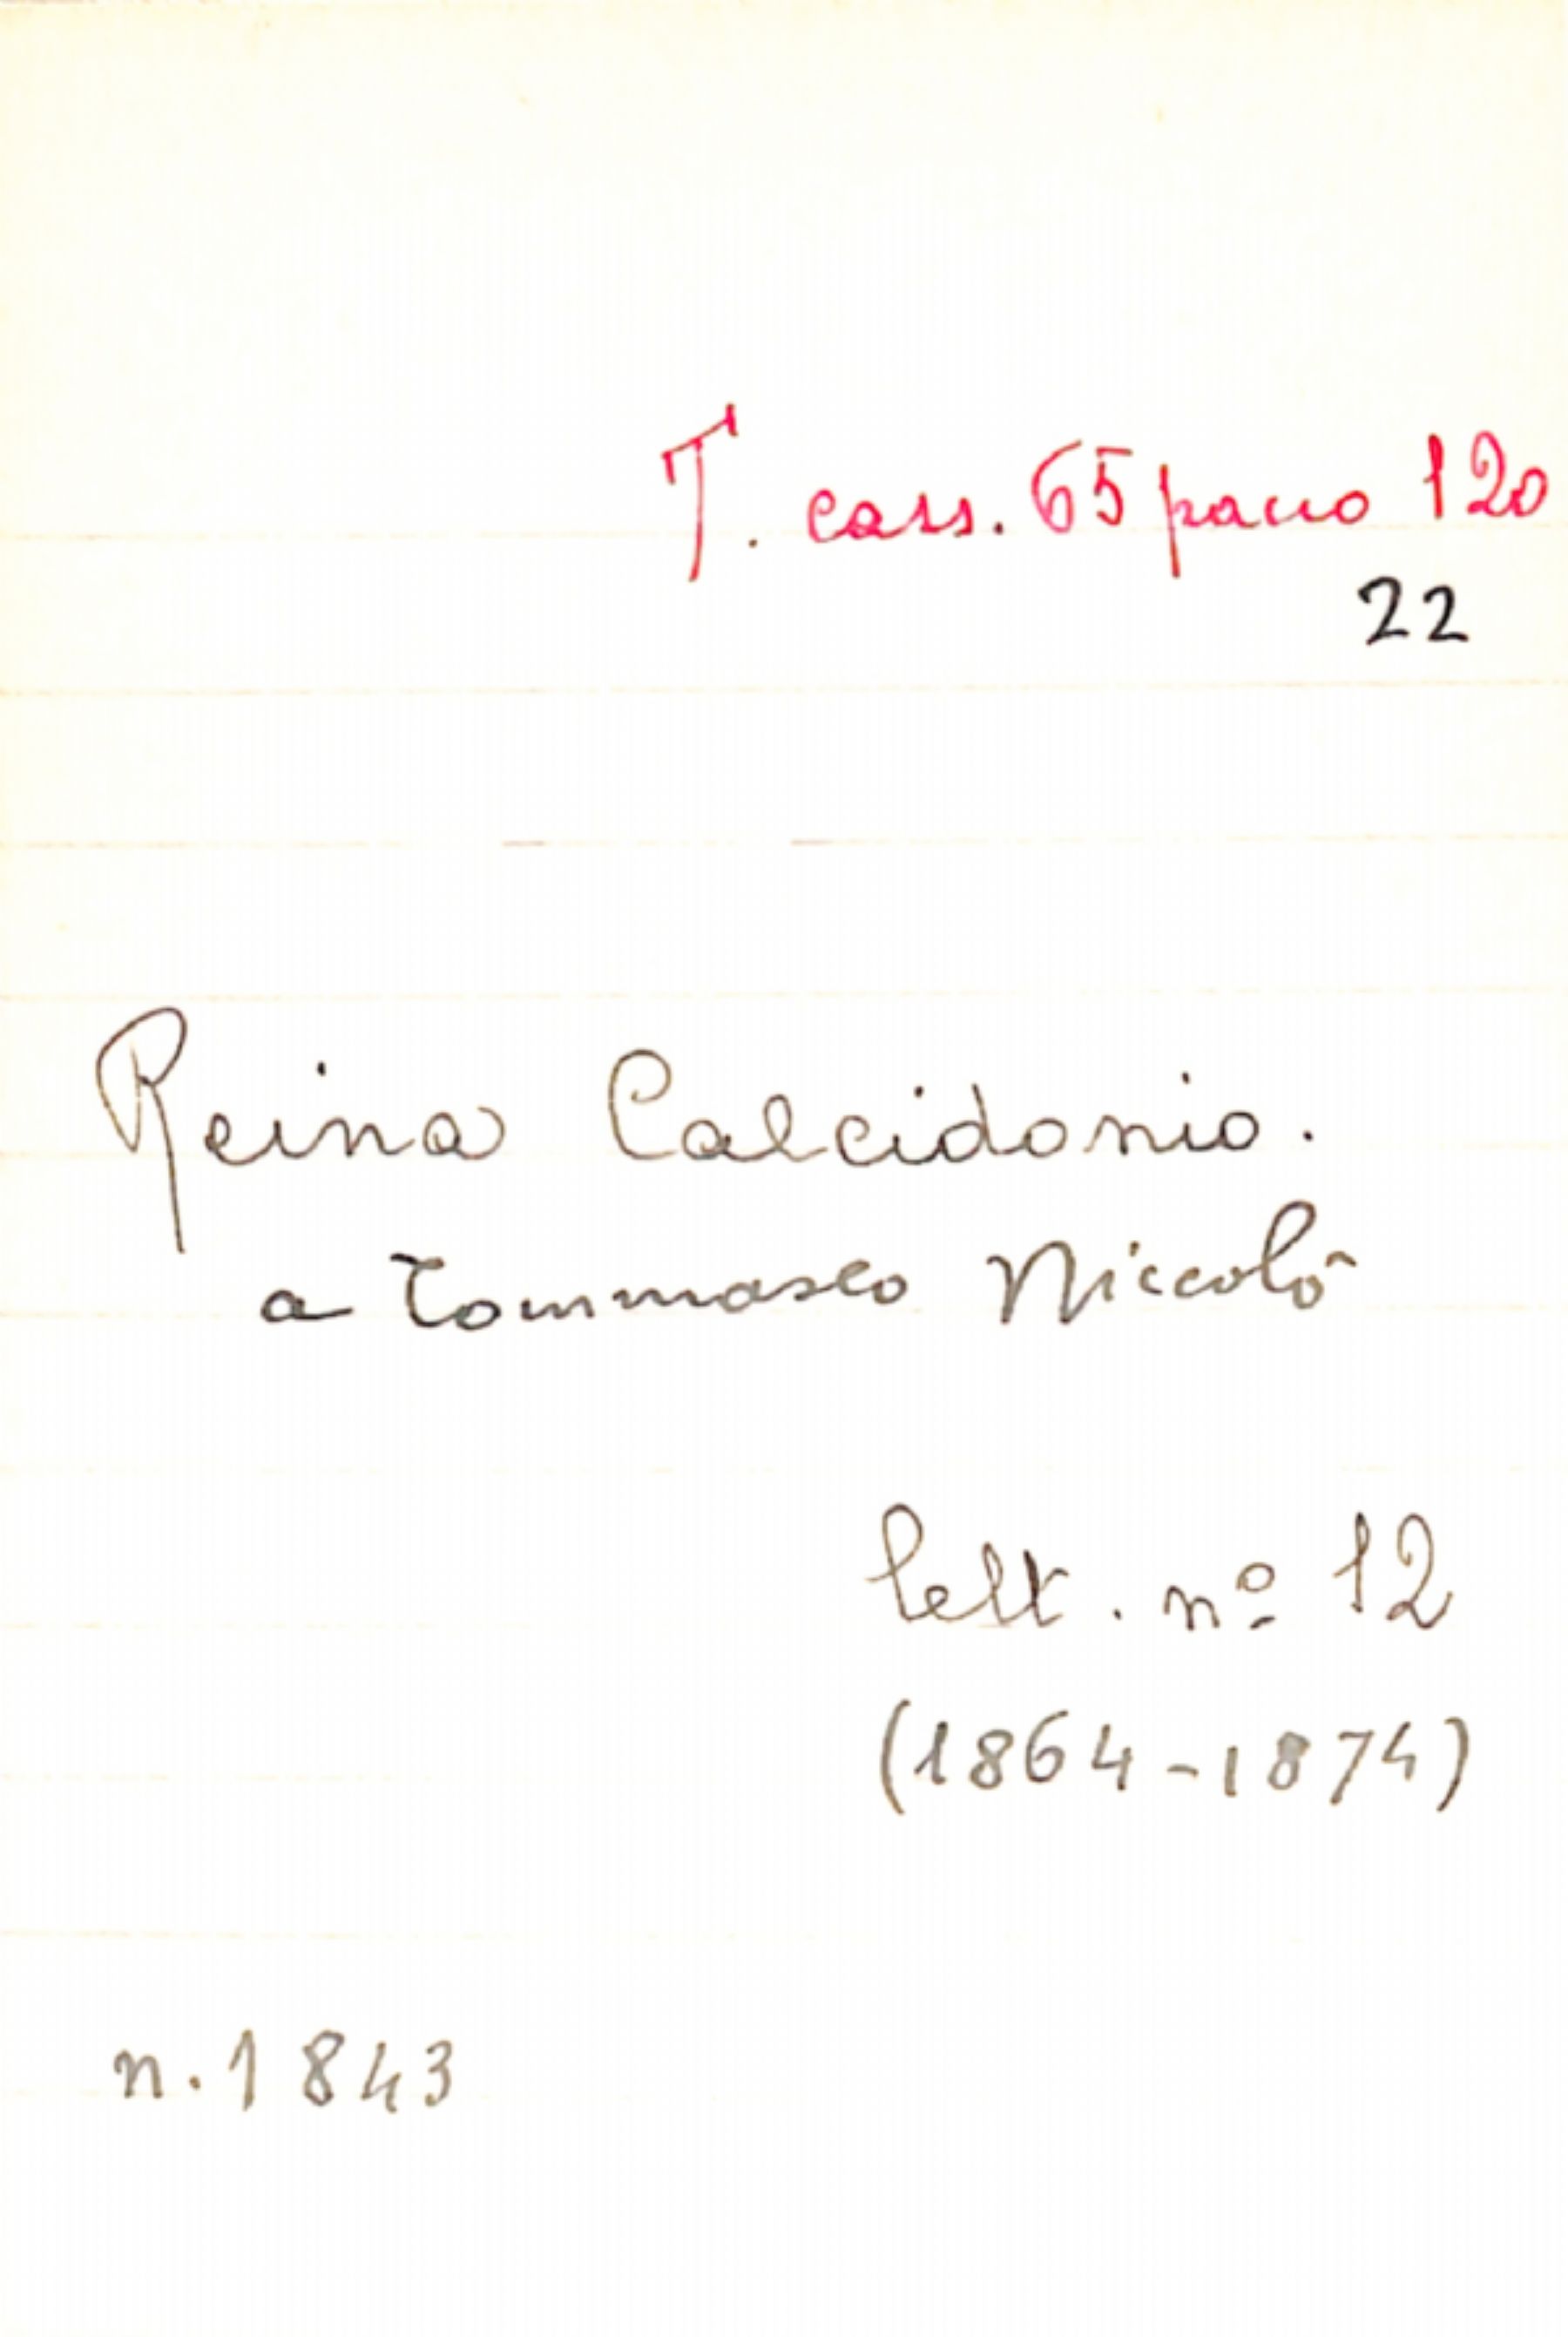 T. cass. 65 pacco 120
22
Reina Calcidonio.
a Tommaseo Niccolò
lett. nº 12
(1864-1874)
n. 1843